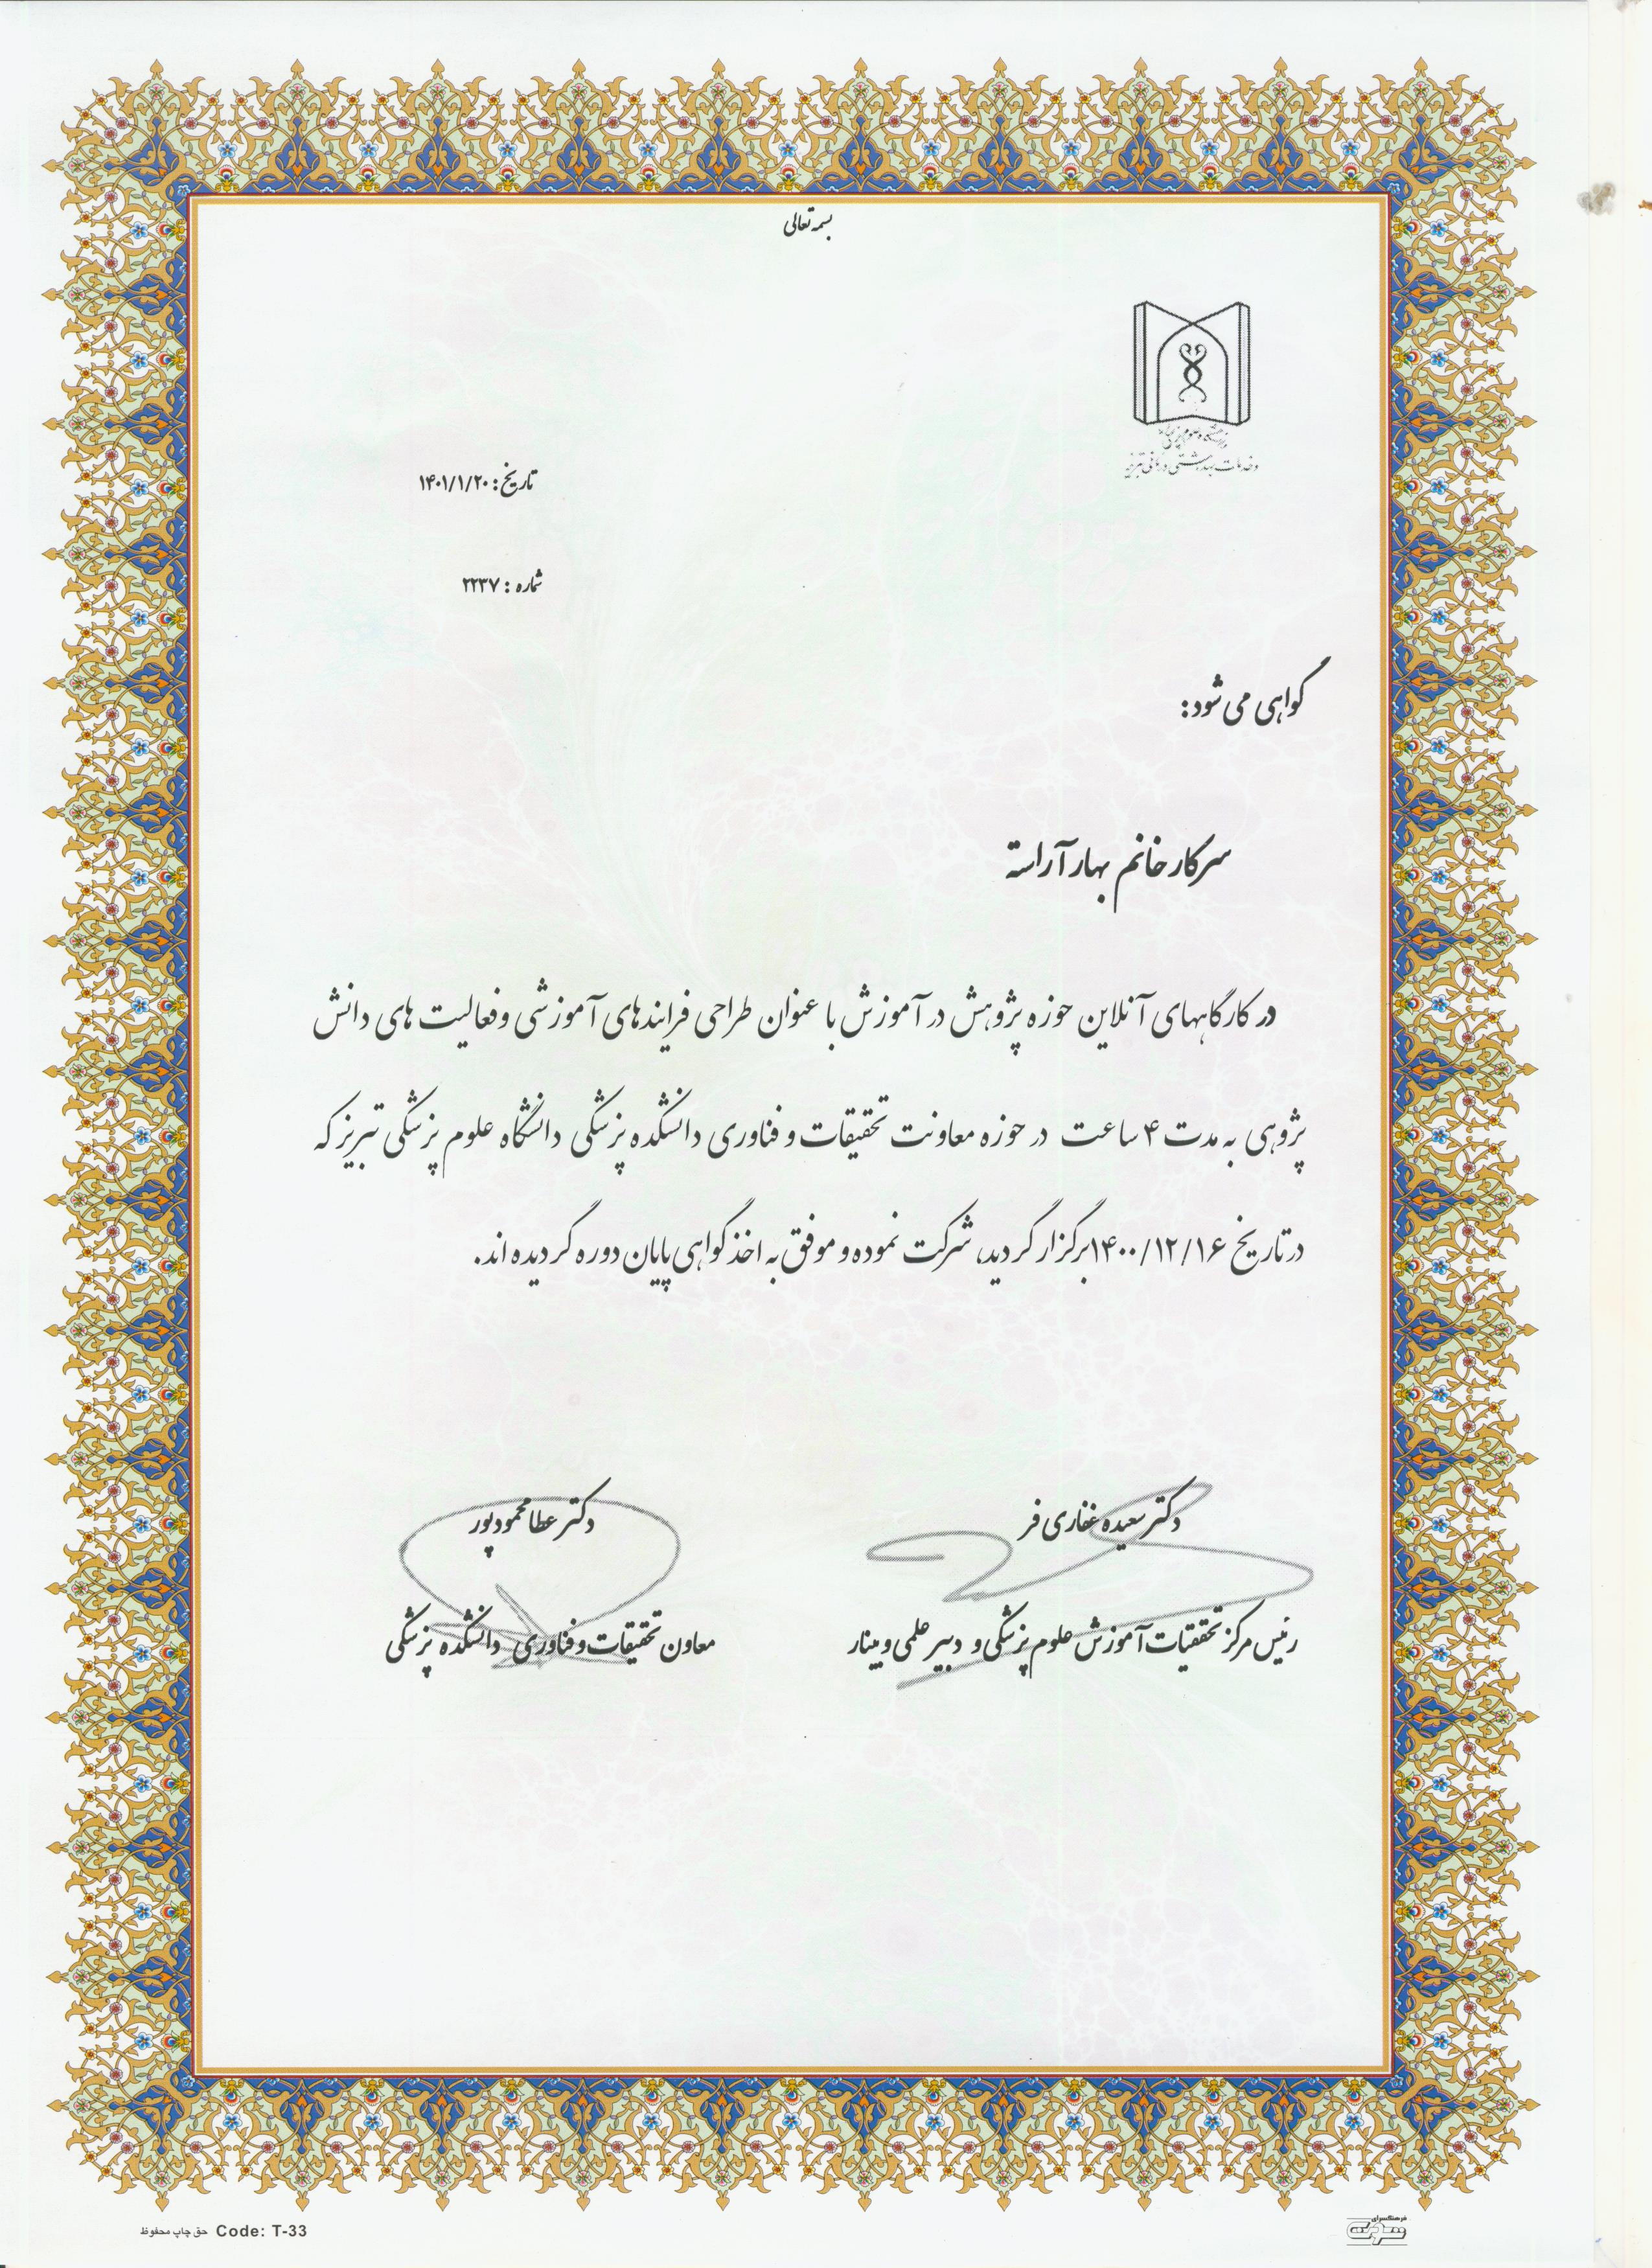 بسمه تعالی
و خدمات بهداشتی درمانی تبریز
تاریخ: ۱۴۰۱/۱/۲۰
شماره: ۲۲۳۷
گواهی می شود:
سرکار خانم بهار آراسته
در کارگاههای آنلاین حوزه پژوهش در آموزش با عنوان طراحی فرایندهای آموزشی و فعالیت های دانش
پژوهی به مدت ۴ ساعت در حوزه معاونت تحقیقات و فناوری دانشکده پزشکی دانشگاه علوم پزشکی تبریز که
در تاریخ ۱۴۰۰/۱۲/۱۶ برگزار گردید، شرکت نموده و موفق به اخذ گواهی پایان دوره گردیده اند.
دکتر سعیده غفاری فر
رئیس مرکز تحقیقات آموزش علوم پزشکی و دبیر علمی وبینار
دکتر عطا محمودپور
معاون تحقیقات و فناوری دانشکده پزشکی
حق چاپ محفوظ Code: T-33
فرهنگسرای